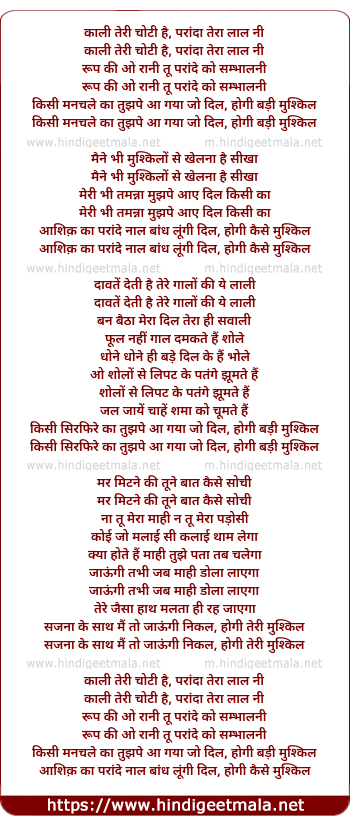 काली तेरी चोटी है, परांदा तेरा लाल नी
काली तेरी चोटी है, परांदा तेरा लाल नी
रूप की ओ रानी तू परांदे को सम्भालनी
रूप की ओ रानी तू परांदे को सम्भालनी
किसी मनचले का तुझपे आ गया जो दिल, होगी बड़ी मुश्किल
किसी मनचले का तुझपे आ गया जो दिल, होगी बड़ी मुश्किल
www.hindigeetmala.net m.hindigeetmala.net
मैने भी मुश्किलों से खेलना है सीखा
मैने भी मुश्किलों से खेलना है सीखा
मेरी भी तमन्ना मुझपे आए दिल किसी का
मेरी भी तमन्ना मुझपे आए दिल किसी का
आशिक़ का परांदे नाल बांध लूंगी दिल, होगी कैसे मुश्किल
आशिक़ का परांदे नाल बांध लूंगी दिल, होगी कैसे मुश्किल
www.hindigeetmala.net m.hindigeetmala.net
दावतें देती है तेरे गालों की ये लाली
दावतें देती है तेरे गालों की ये लाली
बन बैठा मेरा दिल तेरा ही सवाली
फूल नहीं गाल दमकते हैं शोले
धोने धोने ही बड़े दिल के हैं भोले
ओ शोलों से लिपट के पतंगे झूमते हैं
शोलों से लिपट के पतंगे झूमते हैं
जल जायें चाहें शमा को चूमते हैं
किसी सिरफिरे का तुझपे आ गया जो दिल, होगी बड़ी मुश्किल
किसी सिरफिरे का तुझपे आ गया जो दिल, होगी बड़ी मुश्किल
www.hindigeetmala.net m.hindigeetmala.net
मर मिटने की तूने बात कैसे सोची
मर मिटने की तूने बात कैसे सोची
ना तू मेरा माही न तू मेरा पड़ोसी
कोई जो मलाई सी कलाई थाम लेगा
क्या होते हैं माही तुझे पता तब चलेगा
जाऊंगी तभी जब माही डोला लाएगा
जाऊंगी तभी जब माही डोला लाएगा
तेरे जैसा हाथ मलता ही रह जाएगा
सजना के साथ मैं तो जाऊंगी निकल, होगी तेरी मुश्किल
सजना के साथ मैं तो जाऊंगी निकल, होगी तेरी मुश्किल
www.hindigeetmala.net m.hindigeetmala.net
काली तेरी चोटी है, परांदा तेरा लाल नी
काली तेरी चोटी है, परांदा तेरा लाल नी
रूप की ओ रानी तू परांदे को सम्भालनी
रूप की ओ रानी तू परांदे को सम्भालनी
किसी मनचले का तुझपे आ गया जो दिल, होगी बड़ी मुश्किल
आशिक़ का परांदे नाल बांध लूंगी दिल, होगी कैसे मुश्किल
https://www.hindigeetmala.net